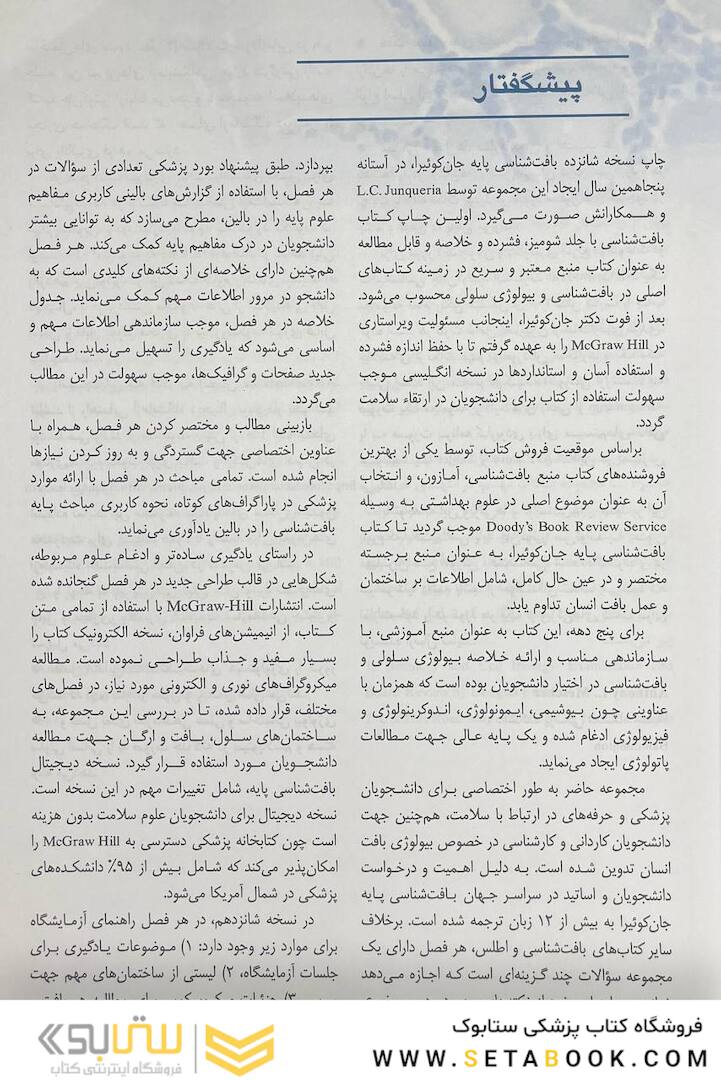 پیشگفتار
چاپ نسخه شانزده بافت‌شناسی پایه جان‌کوئیرا، در آستانه
پنجاهمین سال ایجاد این مجموعه توسط L.C. Junqueria
و همکارانش صورت می‌گیرد. اولین چاپ کتاب
بافت‌شناسی با جلد شومیز، فشرده و خلاصه و قابل مطالعه
به عنوان کتاب منبع معتبر و سریع در زمینه کتاب‌های
اصلی در بافت‌شناسی و بیولوژی سلولی محسوب می‌شود.
بعد از فوت دکتر جان‌کوئیرا، اینجانب مسئولیت ویراستاری
در McGraw Hill را به عهده گرفتم تا با حفظ اندازه فشرده
و استفاده آسان و استانداردها در نسخه انگلیسی موجب
سهولت استفاده از کتاب برای دانشجویان در ارتقاء سلامت
گردد.
براساس موقعیت فروش کتاب، توسط یکی از بهترین
فروشنده‌های کتاب منبع بافت‌شناسی، آمازون، و انتخاب
آن به عنوان موضوع اصلی در علوم بهداشتی به وسیله
Doody's Book Review Service موجب گردید تا کتاب
بافت‌شناسی پایه جان‌کوئیرا، به عنوان منبع برجسته
مختصر و در عین حال کامل، شامل اطلاعات بر ساختمان
و عمل بافت انسان تداوم یابد.
برای پنج دهه، این کتاب به عنوان منبع آموزشی، با
سازماندهی مناسب و ارائه خلاصه بیولوژی سلولی و
بافت‌شناسی در اختیار دانشجویان بوده است که همزمان با
عناوینی چون بیوشیمی، ایمونولوژی، اندوکرینولوژی و
فیزیولوژی ادغام شده و یک پایه عالی جهت مطالعات
پاتولوژی ایجاد می‌نماید.
مجموعه حاضر به طور اختصاصی برای دانشجویان
پزشکی و حرفه‌های در ارتباط با سلامت، هم‌چنین جهت
دانشجویان کاردانی و کارشناسی در خصوص بیولوژی بافت
انسان تدوین شده است. به دلیل اهمیت و درخواست
دانشجویان و اساتید در سراسر جهان بافت‌شناسی پایه
جان‌کوئیرا به بیش از ۱۲ زبان ترجمه شده است. برخلاف
سایر کتاب‌های بافت‌شناسی و اطلس، هر فصل دارای یک
مجموعه سؤالات چند گزینه‌ای است که اجازه می‌دهد
بپردازد. طبق پیشنهاد بورد پزشکی تعدادی از سؤالات در
هر فصل، با استفاده از گزارش‌های بالینی کاربری مفاهیم
علوم پایه را در بالین، مطرح می‌سازد که به توانایی بیشتر
دانشجویان در درک مفاهیم پایه کمک می‌کند. هر فصل
هم‌چنین دارای خلاصه‌ای از نکته‌های کلیدی است که به
دانشجو در مرور اطلاعات مهم کمک می‌نماید. جدول
خلاصه در هر فصل، موجب سازماندهی اطلاعات مهم و
اساسی می‌شود که یادگیری را تسهیل می‌نماید. طراحی
جدید صفحات و گرافیک‌ها، موجب سهولت در این مطالب
می‌گردد.
بازبینی مطالب و مختصر کردن هر فصل، همراه با
عناوین اختصاصی جهت گستردگی و به روز کردن نیازها
انجام شده است. تمامی مباحث در هر فصل با ارائه موارد
پزشکی در پاراگراف‌های کوتاه، نحوه کاربری مباحث پایه
بافت‌شناسی را در بالین یادآوری می‌نماید.
در راستای یادگیری ساده‌تر و ادغام علوم مربوطه،
شکل‌هایی در قالب طراحی جدید در هر فصل گنجانده شده
است. انتشارات McGraw-Hill با استفاده از تمامی متن
کتاب، از انیمیشن‌های فراوان، نسخه الکترونیک کتاب را
بسیار مفید و جذاب طراحی نموده است. مطالعه
میکروگراف‌های نوری و الکترونی مورد نیاز، در فصل‌های
مختلف، قرار داده شده، تا در بررسی این مجموعه، به
ساختمان‌های سلول، بافت و ارگان جهت مطالعه
دانشجویان مورد استفاده قرار گیرد. نسخه دیجیتال
بافت‌شناسی پایه، شامل تغییرات مهم در این نسخه است.
نسخه دیجیتال برای دانشجویان علوم سلامت بدون هزینه
است چون کتابخانه پزشکی دسترسی به McGraw Hill را
امکان‌پذیر می‌کند که شامل بیش از ۹۵٪ دانشکده‌های
پزشکی در شمال آمریکا می‌شود.
در نسخه شانزدهم، در هر فصل راهنمای آزمایشگاه
برای موارد زیر وجود دارد: ۱) موضوعات یادگیری برای
جلسات آزمایشگاه، ۲) لیستی از ساختمان‌های مهم جهت
فروشگاه کتاب پزشکی ستابوک
WWW.SETABOOK.COM
ستابوک
فروشگاه اینترنتی کتاب